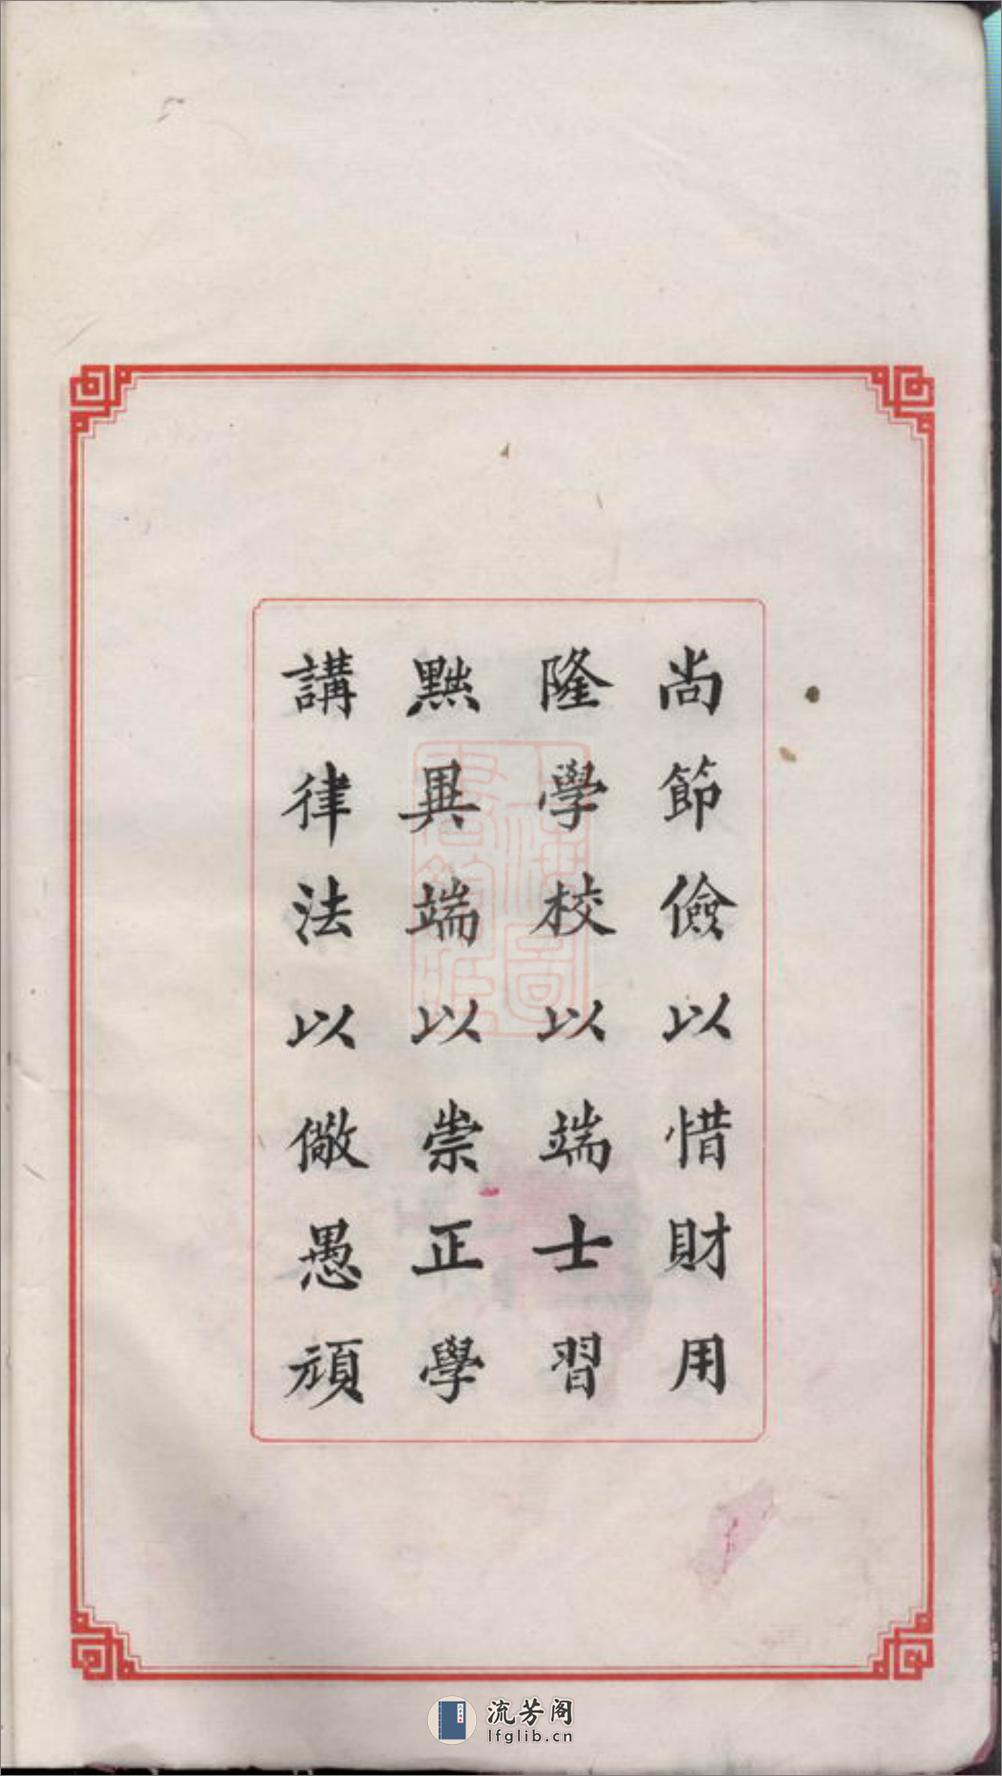 尚節儉以惜財用
隆學校以端士習
黜異端以崇正學
講律法以儆愚頑
流芳阁
lfglib.cn